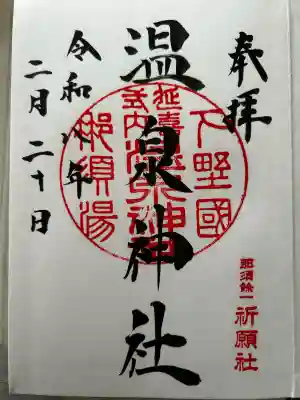 奉拝
下野國
延喜式内温泉神社
那須湯
温泉神社
那須余一祈願社
令和八年
二月二十日